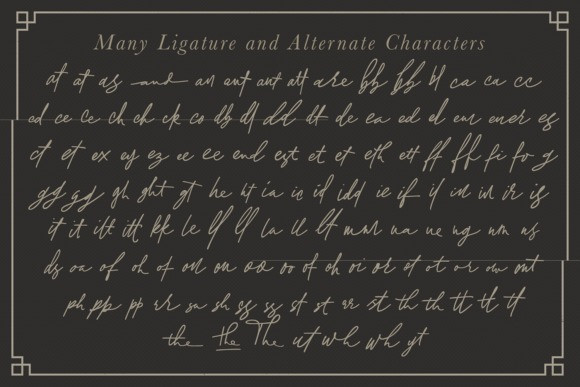 Many Ligature and Alternate Characters
at at as and an ant ant att are bb bb bl ca ca cc
ed ce ce ch ch ck co db dl dd dt de ea ed el em ener es
et et ex ey ez ee ee end est et et eth ett ff ff fi fo g
gg gg gh ght gt he ht ia ic id idd ie if il in in ir is
it it itt itt kk le ll ll la ll lt mm na na ne ng nn ns
ds oa of oh of on on oo oo of oh oi or ot ot or ow ont
ph pp pp rr sa sh ss ss st st st th th tt tt tt
the the The ut wh wh yt